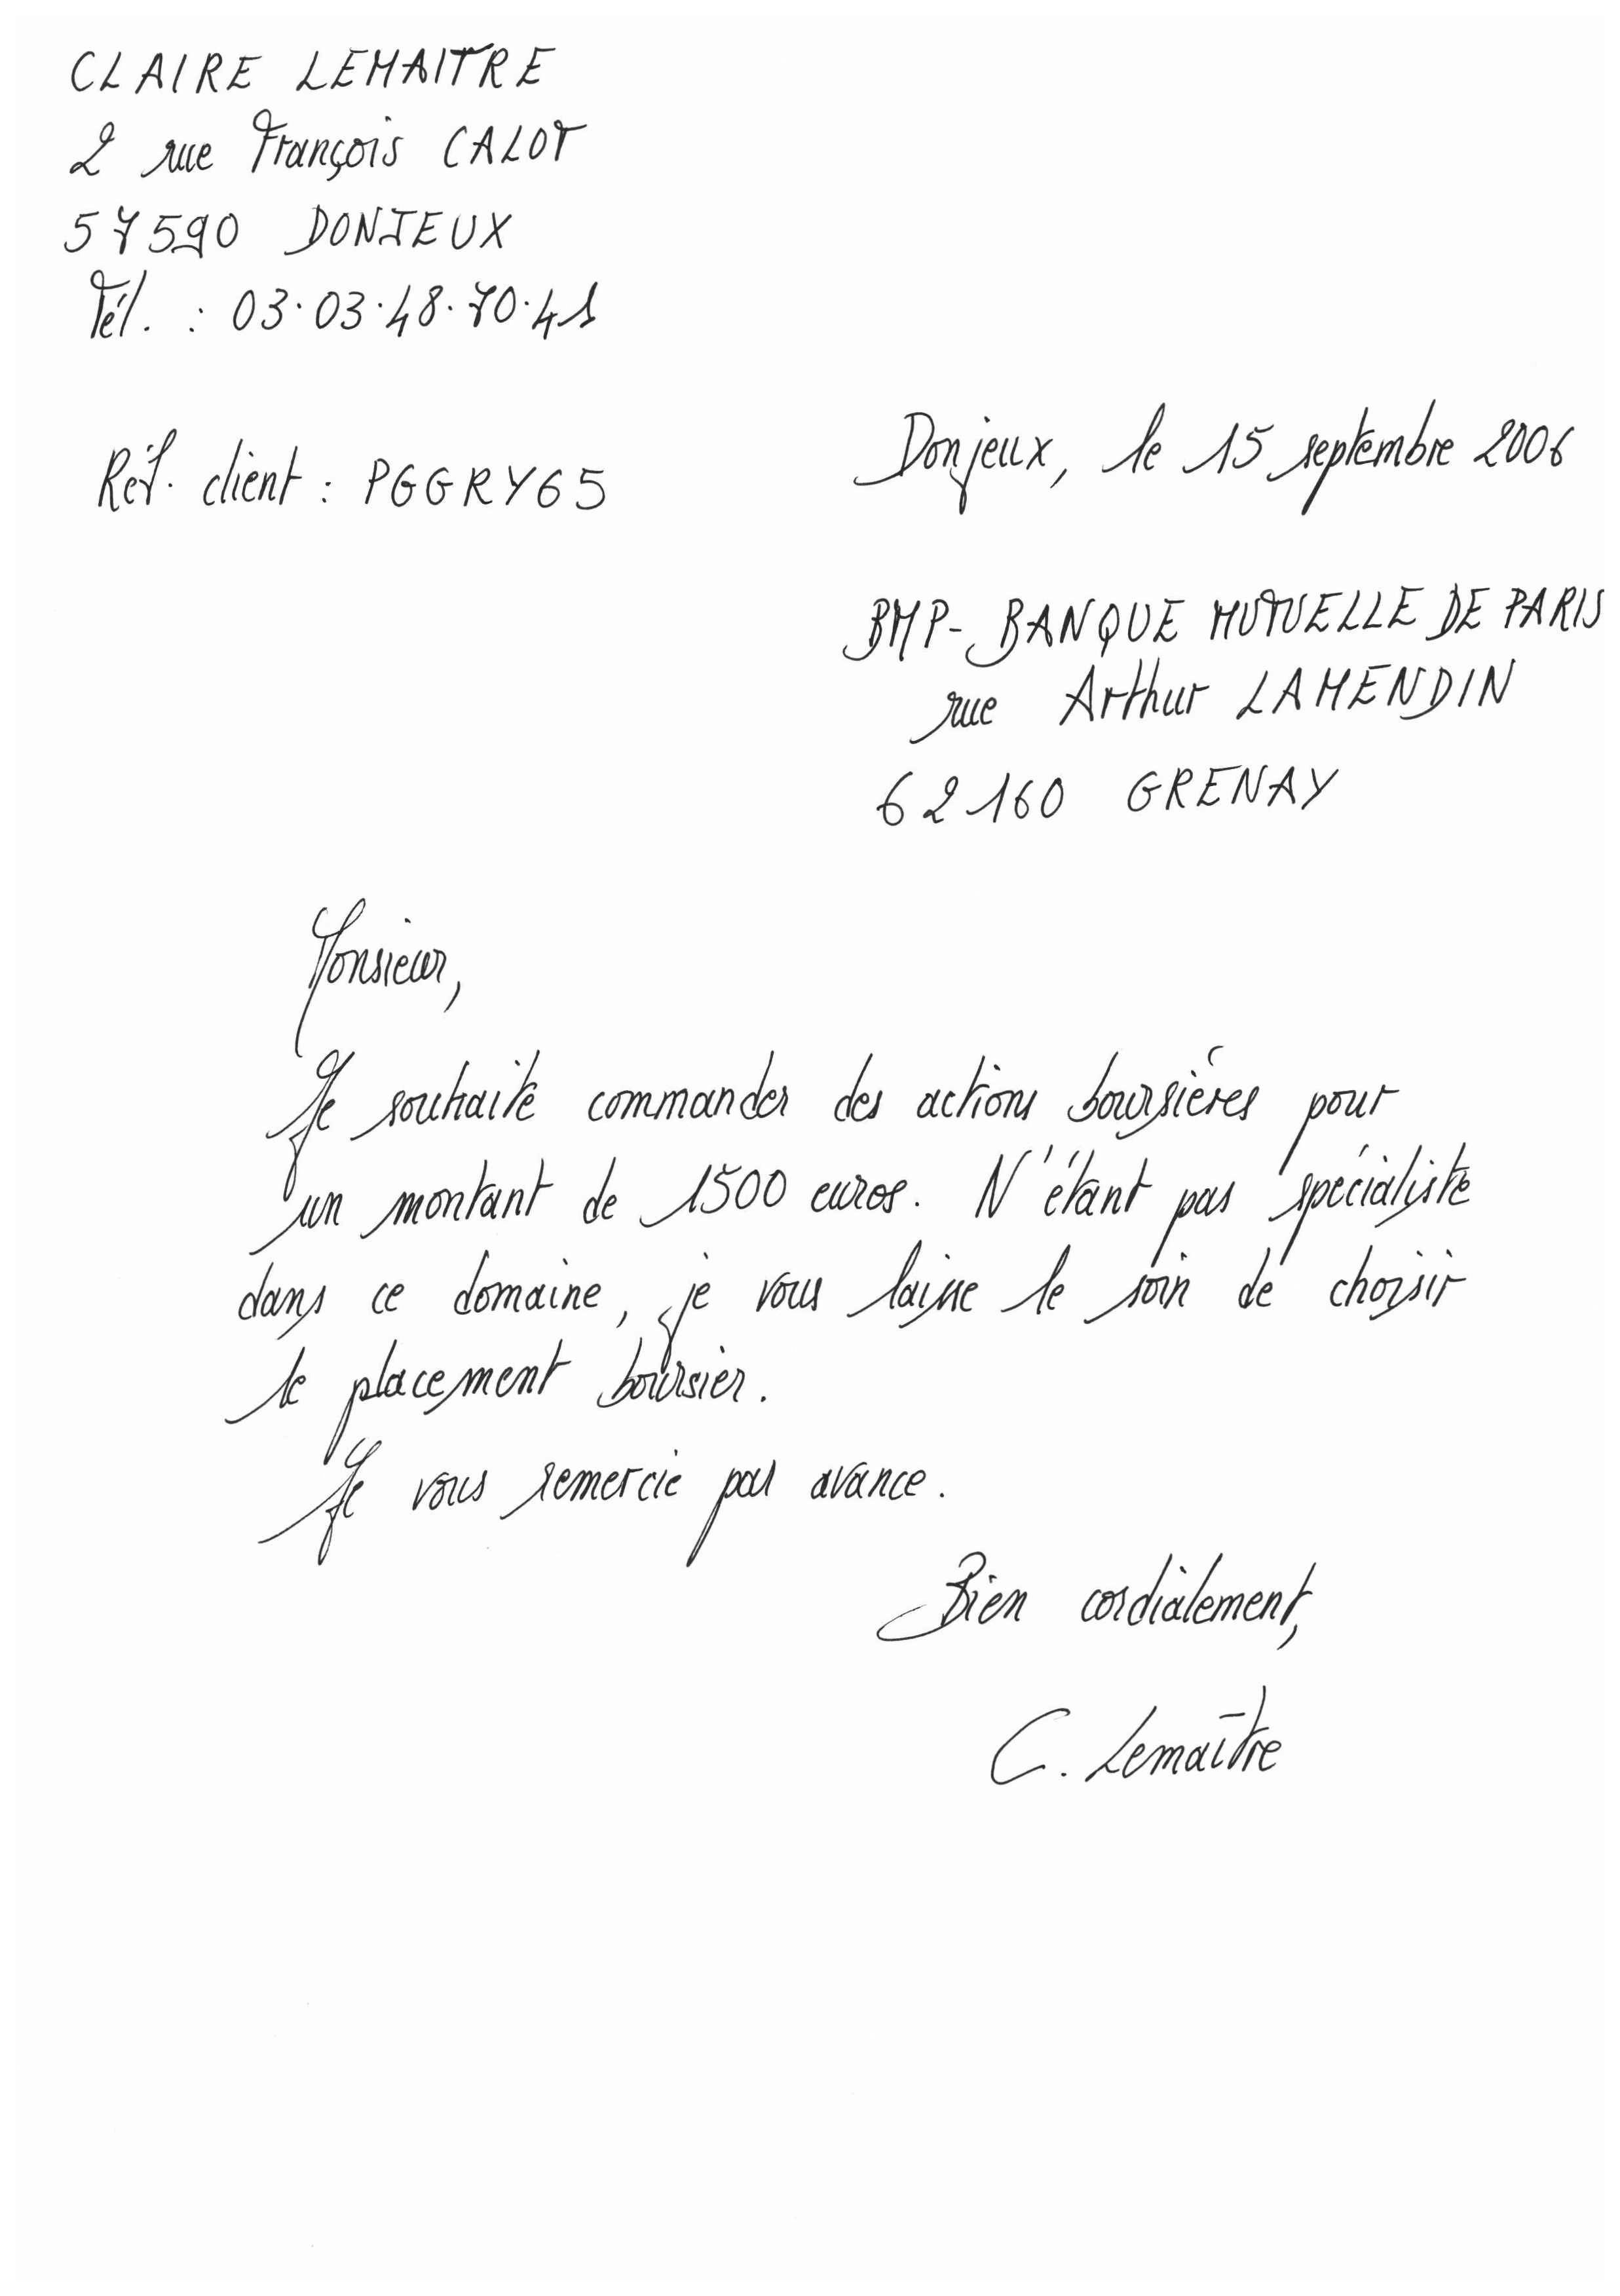 CLAIRE LEMAITRE
2 rue François CALOT
57590 DONJEUX
Tél. : 03.03.48.70.41
Donjeux, le 15 septembre 2006
Réf. client : PGGRY65
BMP- BANQUE MUTUELLE DE PARIS
rue Arthur LAMENDIN
62160 GRENAY
Monsieur,
Je souhaite commander des actions boursières pour
un montant de 1500 euros. N'étant pas spécialiste
dans ce domaine, je vous laisse le soin de choisir
le placement boursier.
Je vous remercie par avance.
Bien cordialement,
C. Lemaître